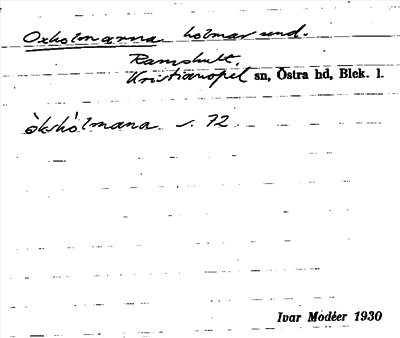 Oxholmarna holmar und.
Ramshult,
Kristianopel sn, Östra hd, Blek. l.
òkshòlmana s. 72
Ivar Modéer 1930